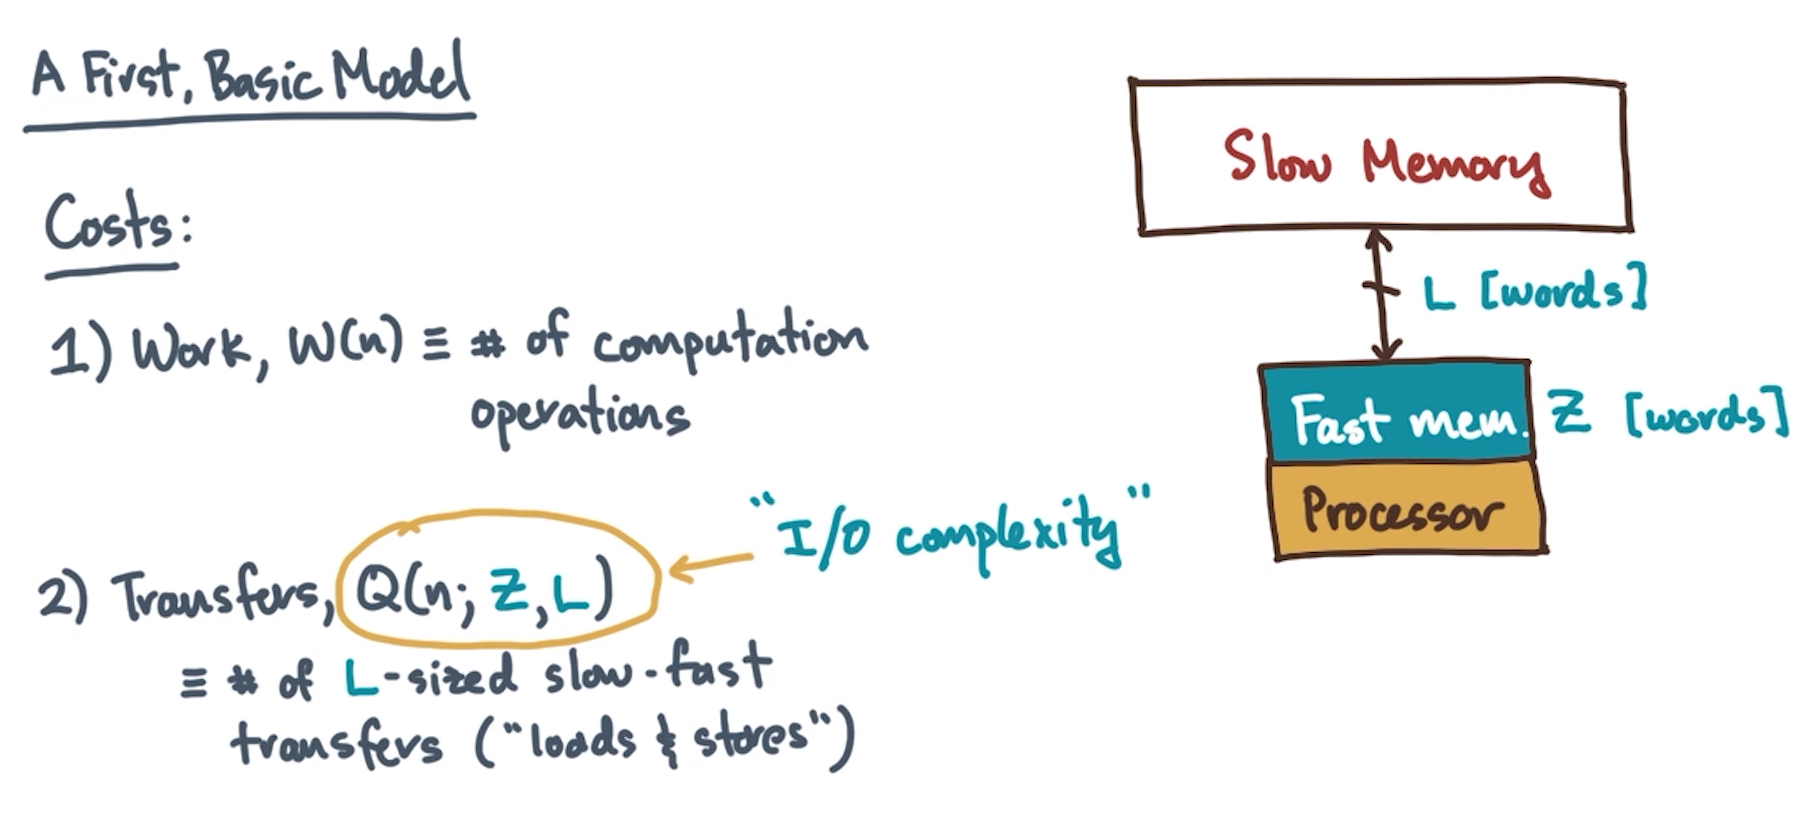 A First, Basic Model
Costs:
1) Work, W(n) ≡ # of computation
operations
2) Transfers, Q(n; Z, L)
≡ # of L-sized slow-fast
transfers ("loads & stores")
"I/O complexity"
Slow Memory
L [words]
Fast mem. Z [words]
Processor